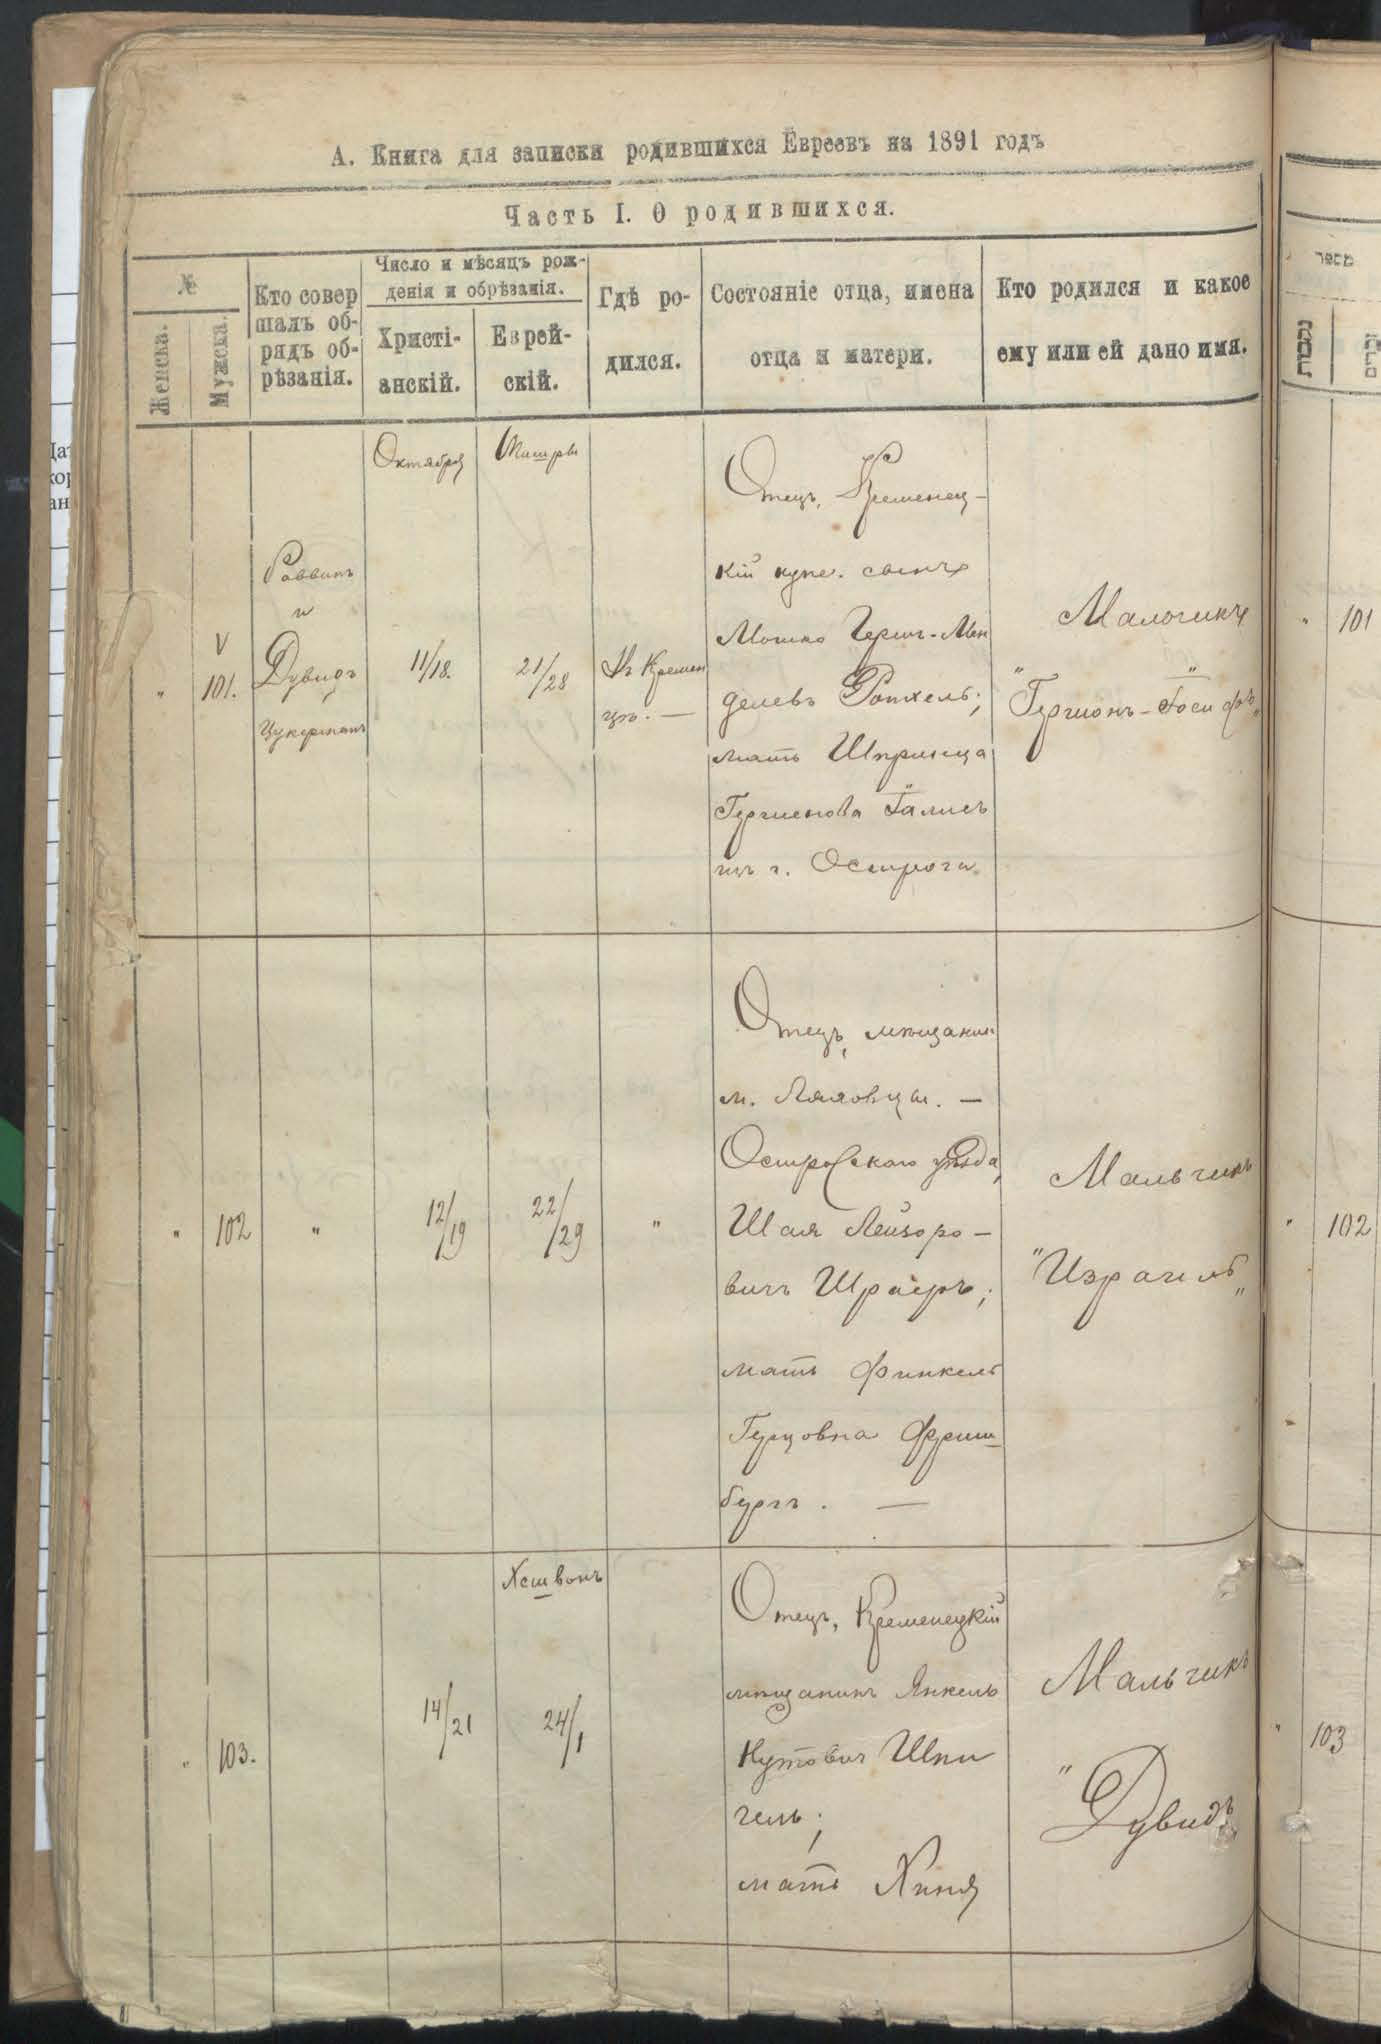 А. Книга для записки родившихся Евреевъ на 1891 годъ
Часть I. О родившихся.
№
Женска.
Мужска.
Кто совер
шалъ об-
рядъ об-
рѣзанія.
Число и мѣсяцъ рож-
денія и обрѣзанія.
Христі-
анскій.
Еврей-
скій.
Гдѣ ро-
дился.
Состояніе отца, имена
отца и матери.
Кто родился и какое
ему или ей дано имя.
Октября
Тишри
"
101.
Раввинъ
и
Дувидъ
Цукерманъ
11/18.
21/28
Въ Кремен
цѣ. —
Отецъ, Кременец-
кій купе. сынъ
Мошко Герш-Мен
делевъ Ротхель;
мать Шпринца
Гершенова
изъ г. Острога
Мальчикъ
"Гершонъ-Іосифъ„
"
102
"
12/19
22/29
"
Отецъ, мѣщанин
м. Ляховцы. —
Острожскаго уѣзда,
Шая Лейзоро-
вичъ Шраеръ;
мать Финкель
Герцовна Фриш-
бургъ. —
Мальчикъ
"Израиль„
"
103.
14/21
Хешвонъ
24/1
Отецъ, Кременецкій
мѣщанинъ Янкель
Нутович Шпи
гель;
мать Хиня
Мальчикъ
"Дувидъ„
מספר
נקבות
זכרים
"
101
"
102
"
103